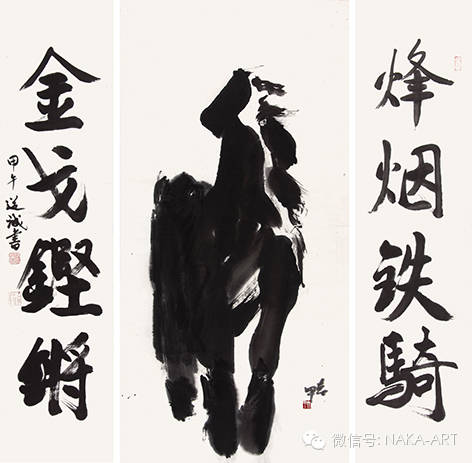 烽烟铁騎
金戈鏗鏘
甲午道誠書
微信号: NAKA-ART